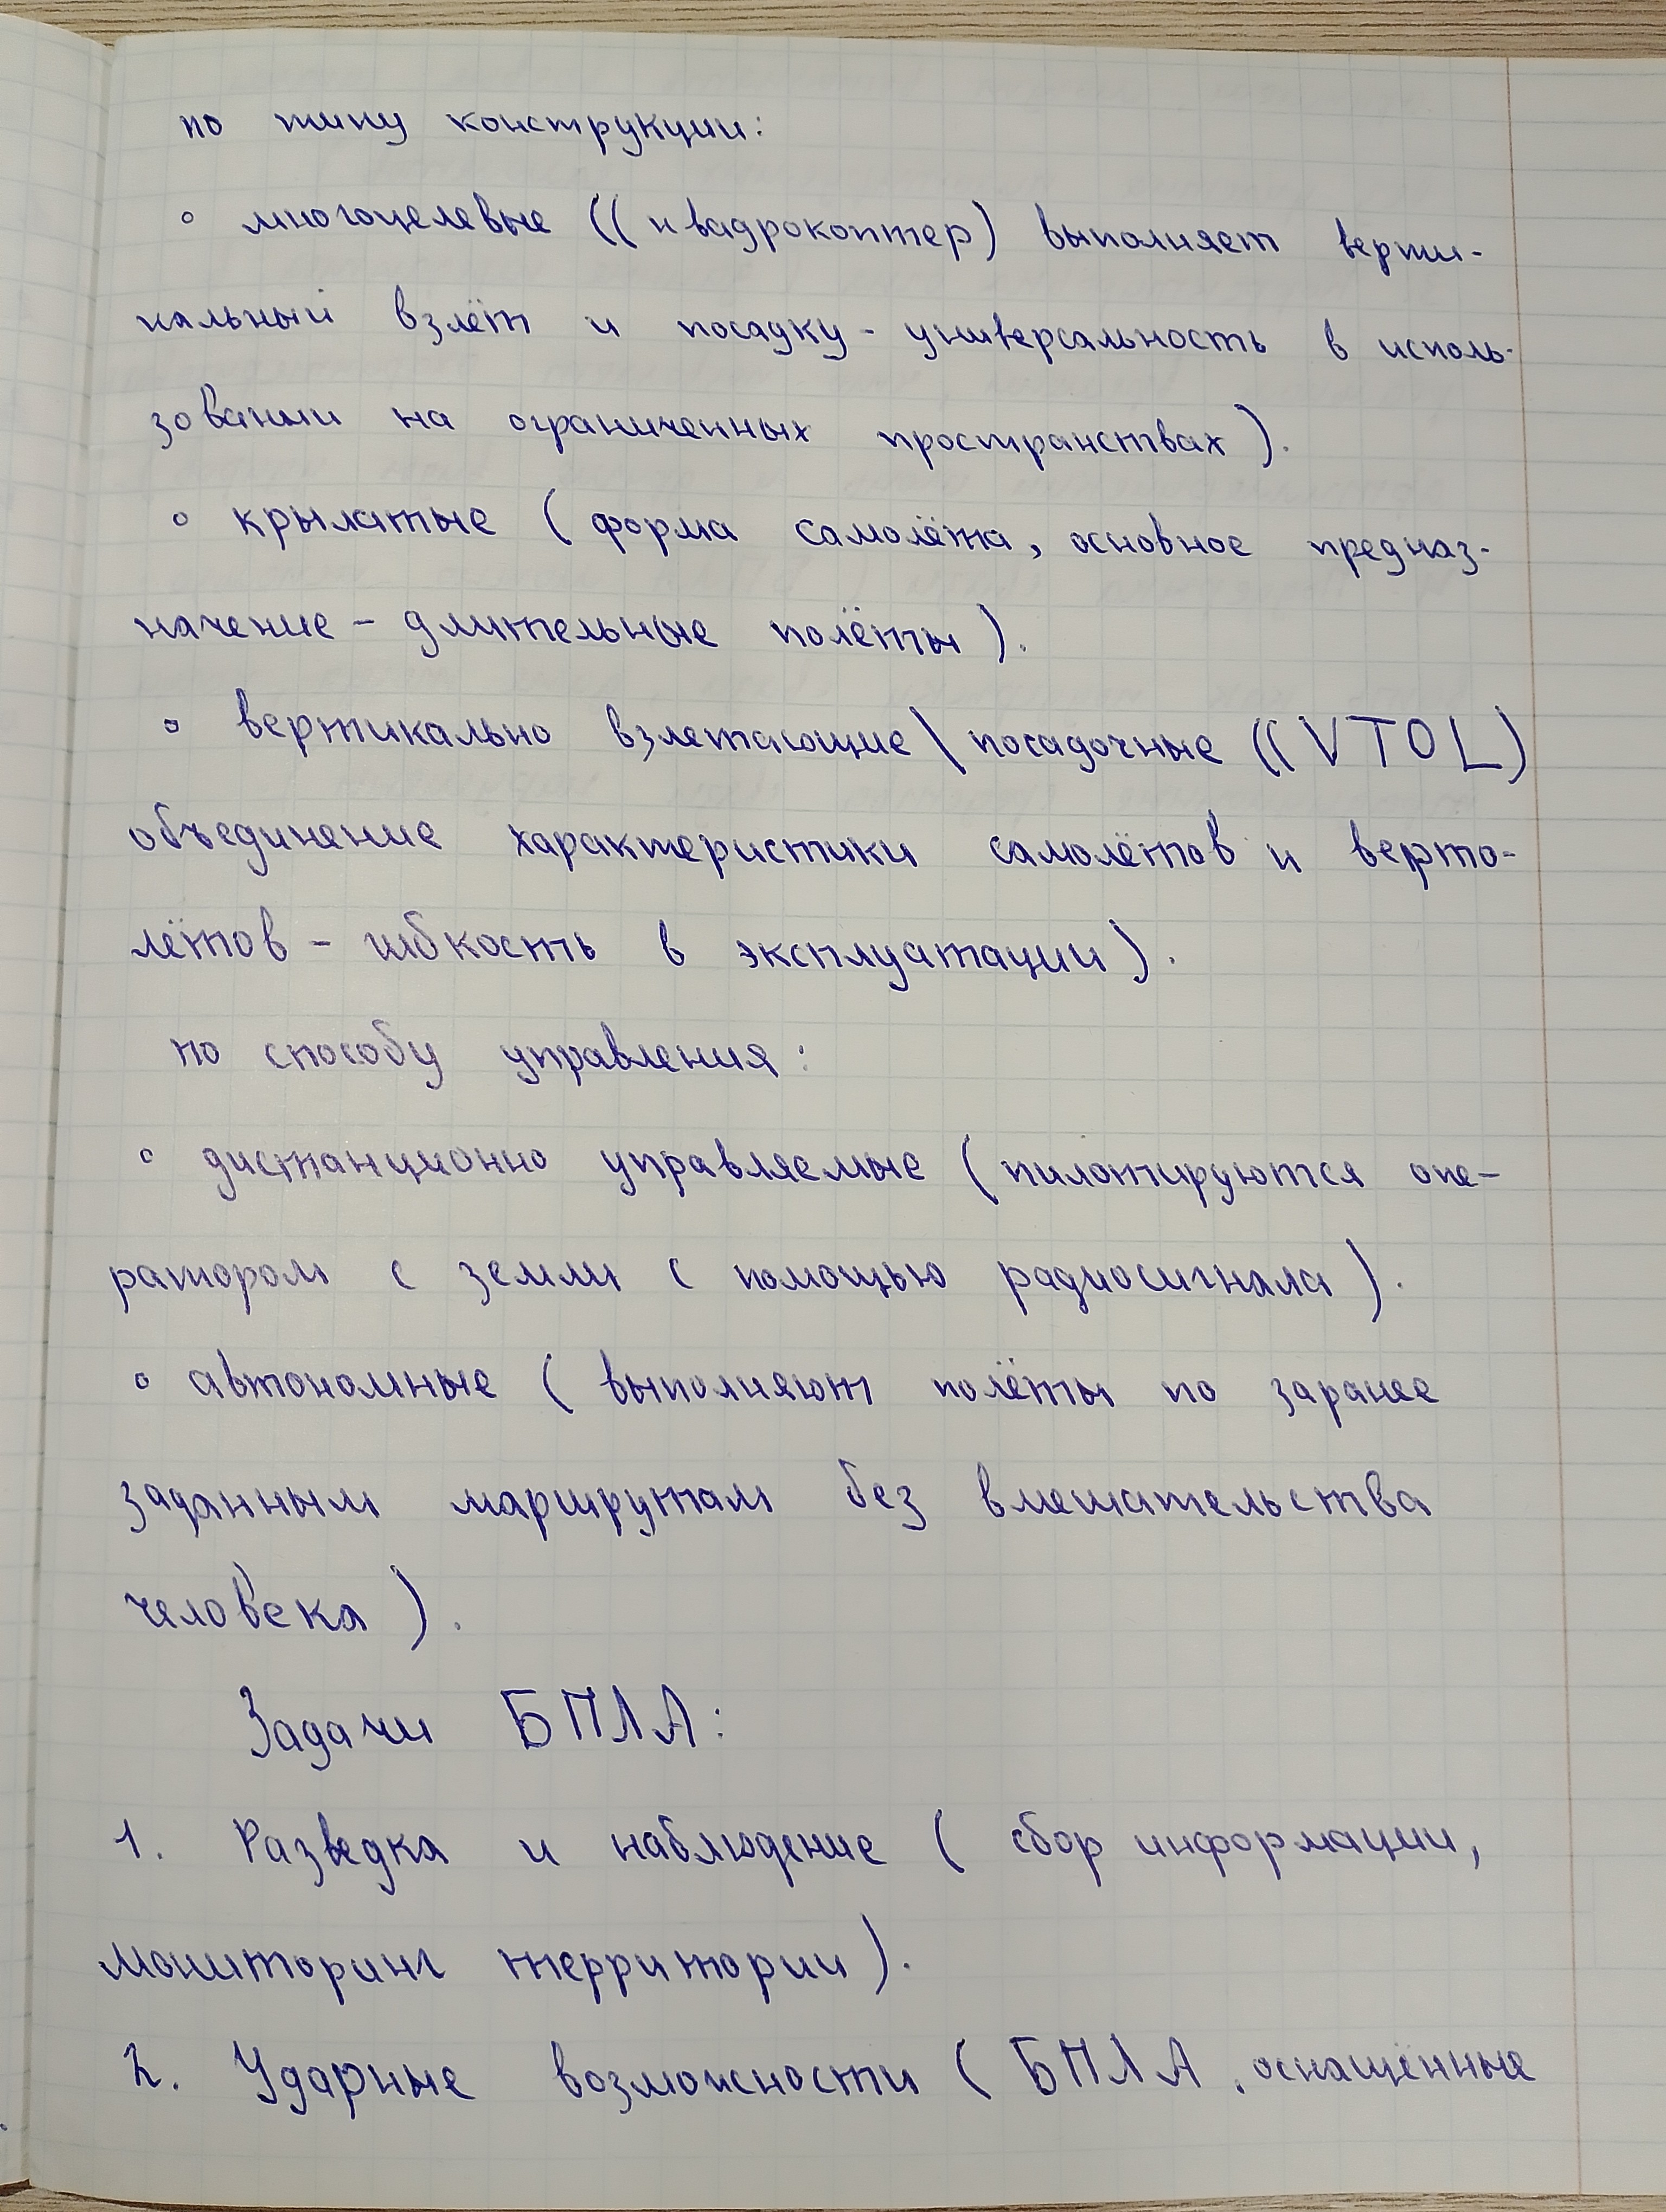 по типу конструкции:
◦ многоцелевые ((квадрокоптер) выполняет верти-
кальный взлёт и посадку - универсальность в исполь-
зовании на ограниченных пространствах).
◦ крылатые (форма самолёта, основное предназ-
начение - длительные полёты).
◦ вертикально взлетающие \ посадочные ((VTOL)
объединение характеристики самолётов и верто-
лётов - гибкость в эксплуатации).
по способу управления:
◦ дистанционно управляемые (пилотируются опе-
ратором с земли с помощью радиосигнала).
◦ автономные (выполняют полёты по заранее
заданным маршрутам без вмешательства
человека).
Задачи БПЛА:
1. Разведка и наблюдение (сбор информации,
мониторинг территории).
2. Ударные возможности (БПЛА, оснащённые